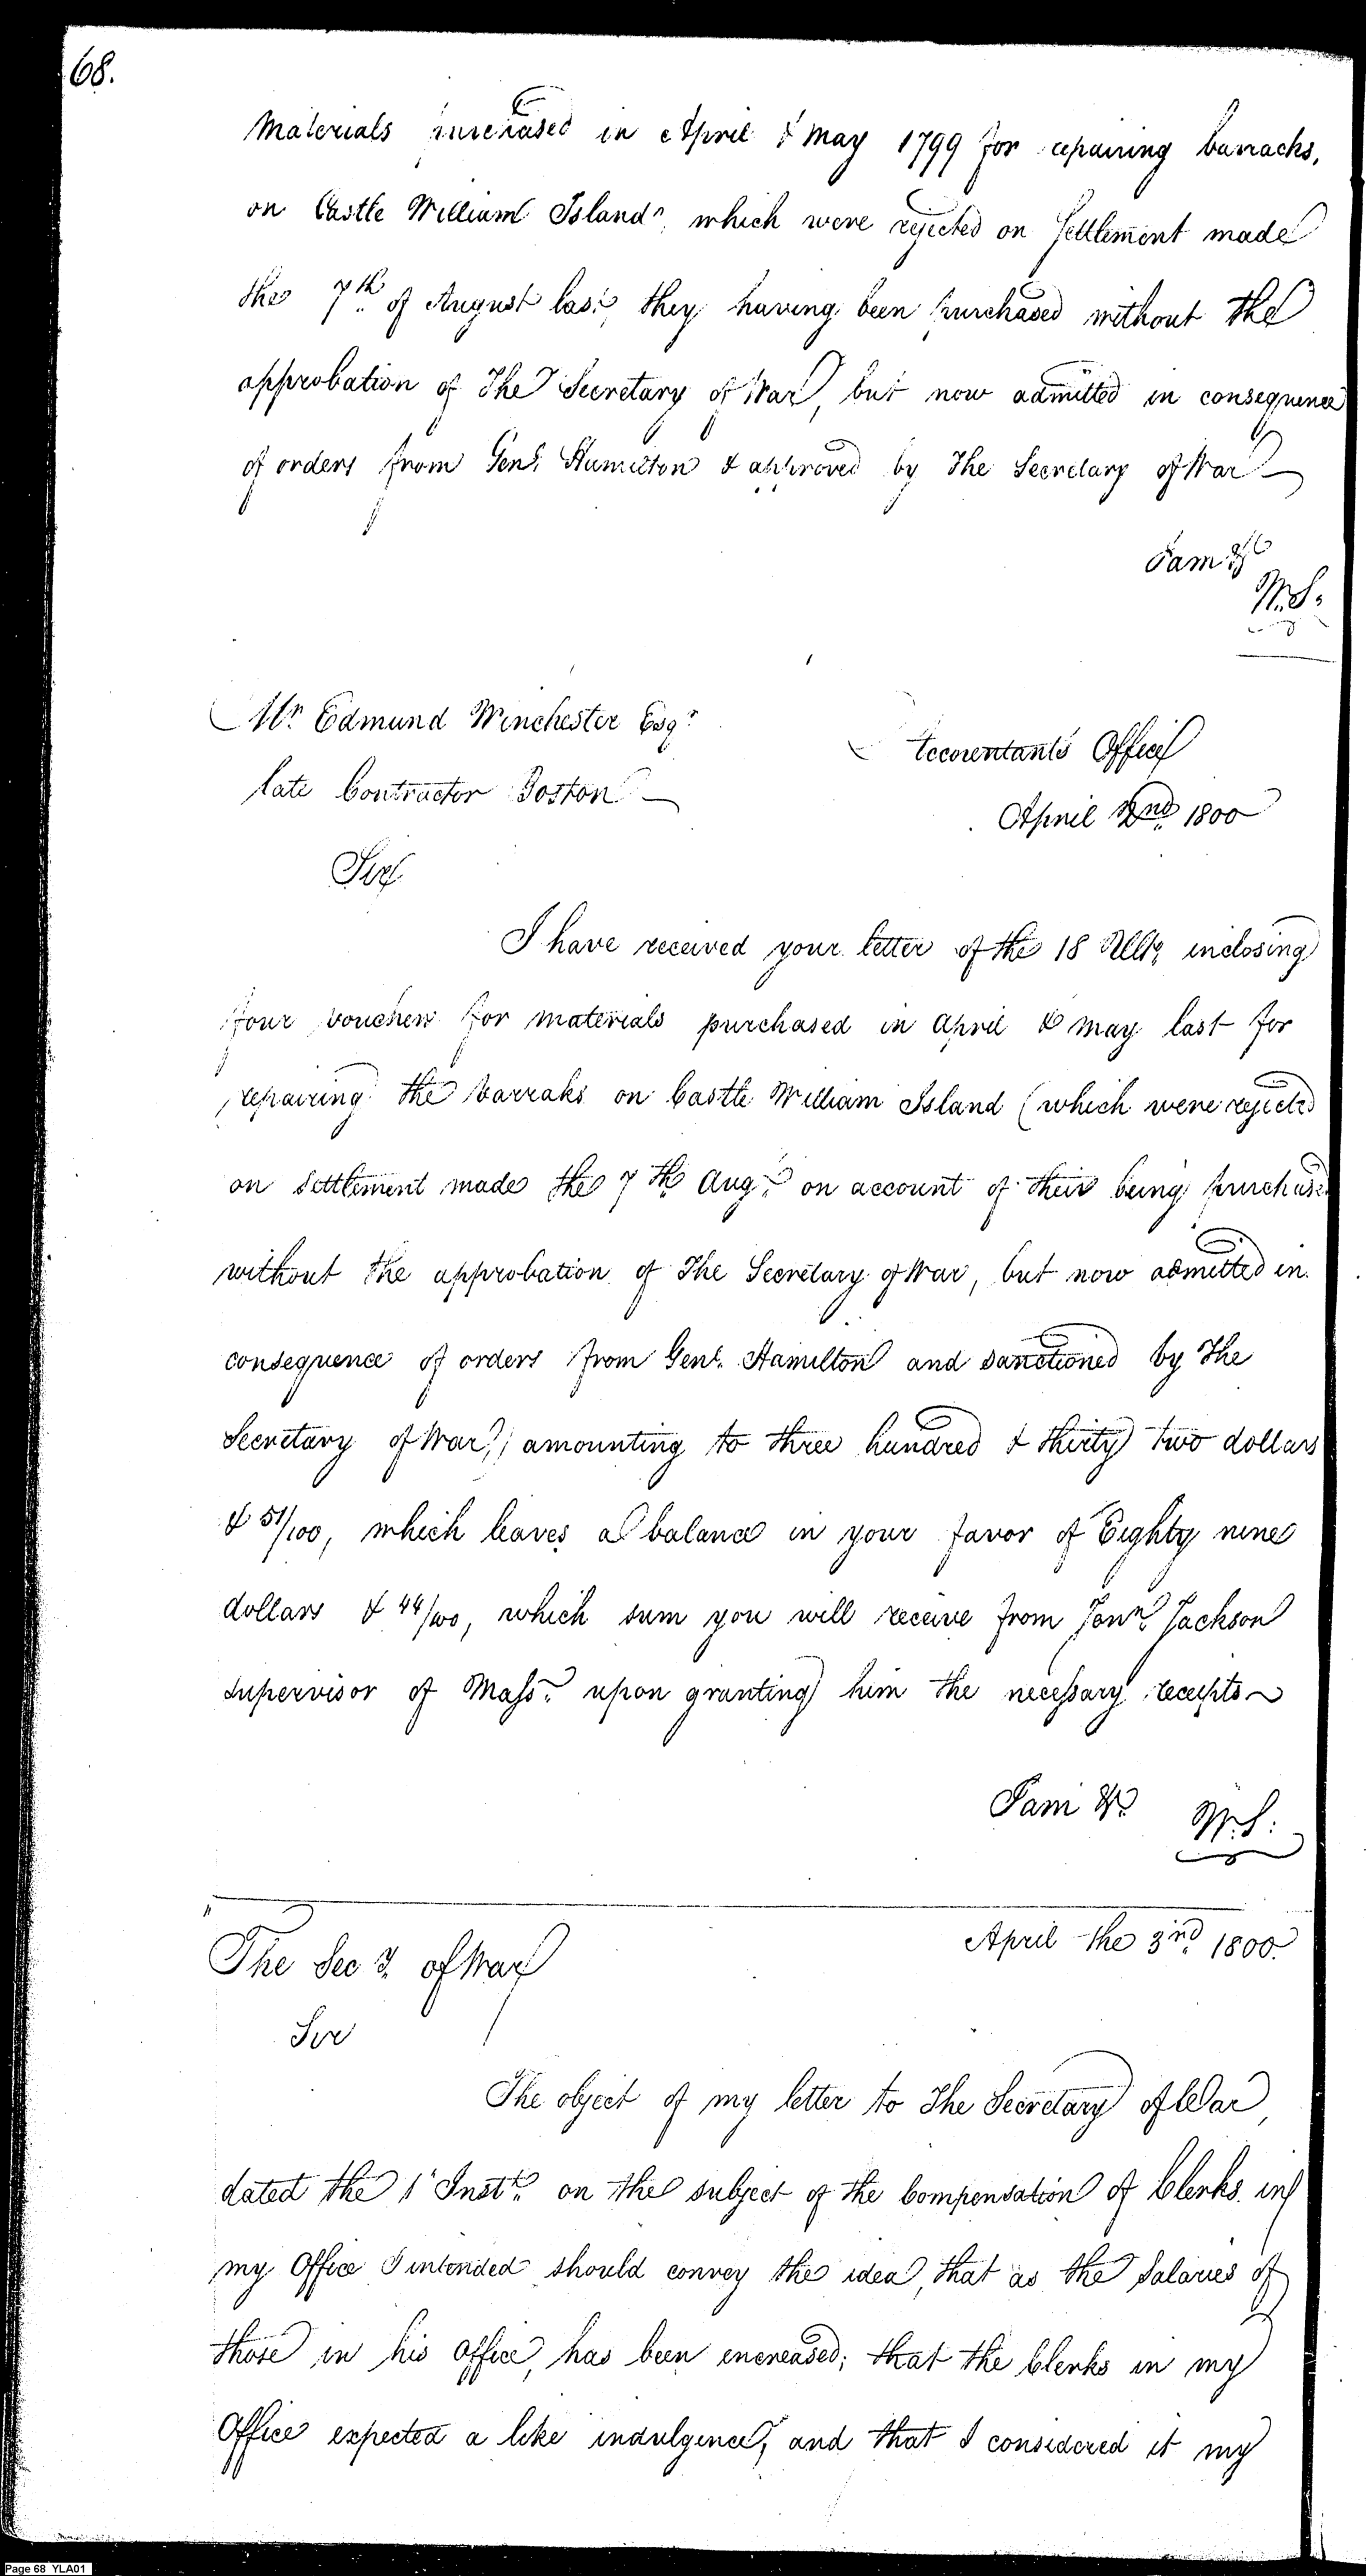 68.
Materials purchased in April & May 1799 for repairing barracks,
on Castle William Island, which were rejected on Settlement made
the 7th of August last, they having been purchased without the
approbation of The Secretary of War, but now admitted in consequence
of orders from Genl. Hamilton & approved by The Secretary of War
I am &c
W.S.
Mr. Edmund Winchester Esqr.
late Contractor Boston
Accountants Office
April 2nd 1800
Sir
I have received your letter of the 18 Ulto, inclosing
four vouchers for materials purchased in April & May last for
repairing the barraks on Castle William Island (which were rejected
on settlement made the 7th Augt. on account of their being purchased
without the approbation of The Secretary of War, but now admitted in
consequence of orders from Genl. Hamilton and sanctioned by The
Secretary of War,) amounting to three hundred & thirty two dollars
& 51/100, which leaves a balance in your favor of Eighty nine
dollars & 44/100, which sum you will receive from Jonn. Jackson
supervisor of Masss. upon granting him the necessary receipts
I am &c. W.S:
The Secy. of War
April the 3rd. 1800.
Sir
The object of my letter to The Secretary of War,
dated the 1 Instt. on the subject of the Compensation of Clerks in
my Office I intended should convey the idea, that as the Salaries of
those in his office, has been encreased; that the Clerks in my
Office expected a like indulgence, and that I considered it my
Page 68 YLA01